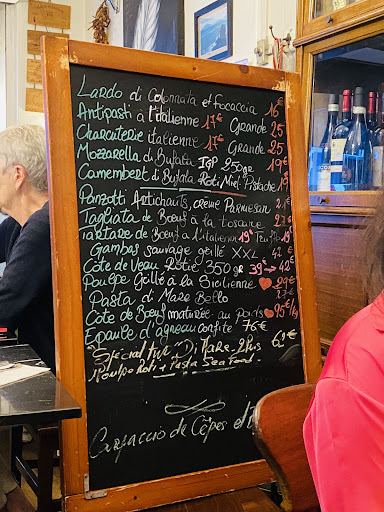 Lardo di Colonnata et focaccia 16€
Antipasti à l'italienne 17€ Grande 25
Charcuterie italienne 17€ Grande 25
Mozzarella di Bufala IGP 250gr 19€
Camembert di Bufala Roti Miel Pistache 19
Panzotti Artichauts, creme Parmesan 21€
Tagliata de Bœuf à la toscane
Tartare de Bœuf à l'italienne 19€
Gambas sauvage grillé XXL 42
Côte de Veau Rôtie 350gr 39€ 42€
Poulpe Grillé à la Sicilienne 29€
Pasta di Mare Bello
Cote de Bœuf maturée au poids 95€/kg
Epaule d'agneau confite 76€
Special
Pasta Sea Food 69€
Carpaccio de Cèpes